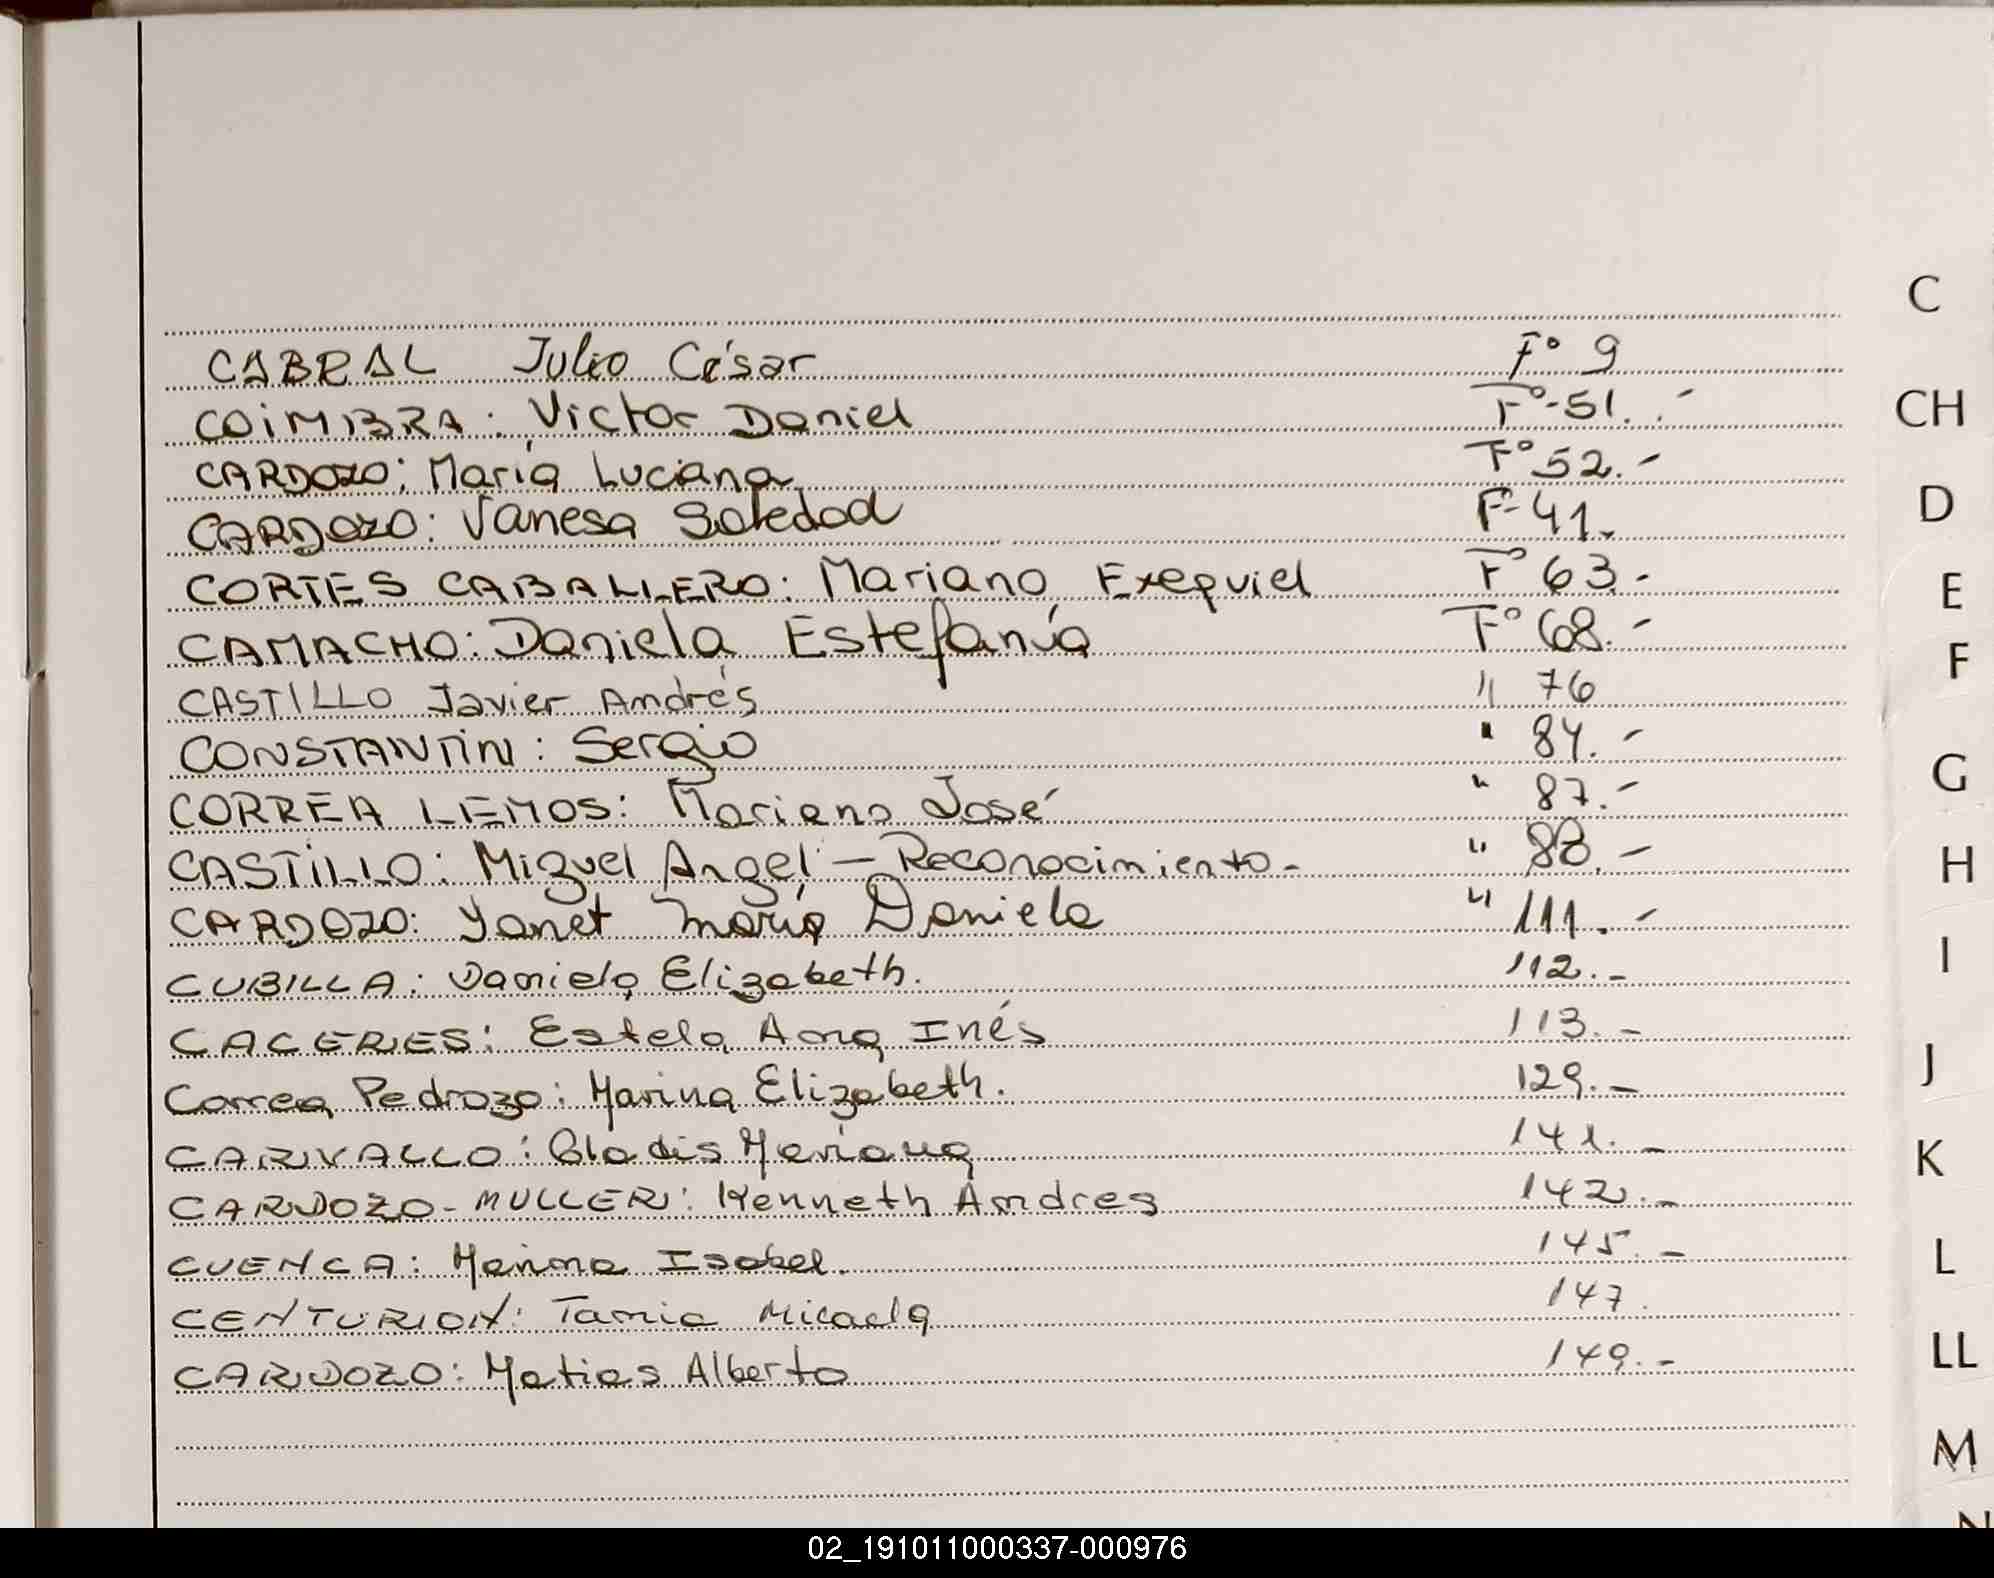 C
CABRAL Julio César F° 9
COIMBRA: Victor Daniel F°-51.-
CH
CARDOZO: María Luciana F° 52.-
CARDOZO: Vanesa Soledad F-41.-
D
CORTES CABALLERO: Mariano Exequiel F° 63.-
E
CAMACHO: Daniela Estefanía F° 68.-
F
CASTILLO Javier Andrés " 76
CONSTANTINI: Sergio " 84.-
G
CORREA LEMOS: Mariano José " 87.-
CASTILLO: Miguel Angel - Reconocimiento- " 88.-
H
CARDOZO: Yanet María Daniela " 111.-
I
CUBILLA: Daniela Elizabeth. 112.-
CACERES: Estela Ana Inés 113.-
J
Correa Pedrozo: Marina Elizabeth. 129.-
CARVALLO: Gladis Mariana 141.-
K
CARDOZO-MULLER: Kenneth Andres 142.-
CUENCA: Marina Isabel. 145.-
L
CENTURION: Tania Micaela 147.
LL
CARDOZO: Matias Alberto 149.-
M
N
02_191011000337-000976